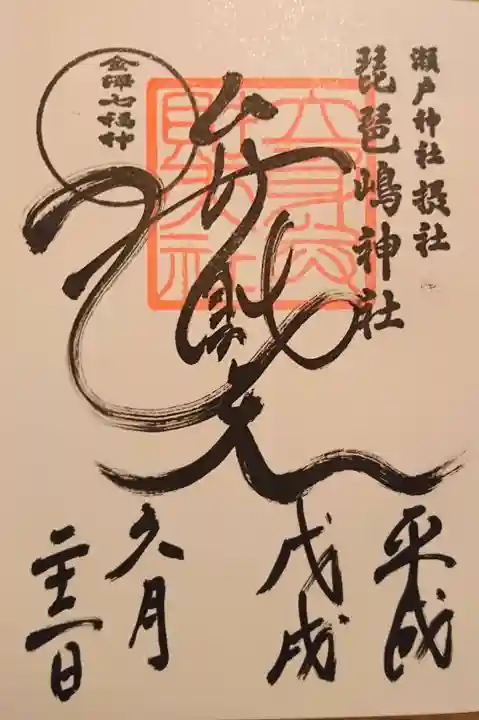 瀬戸神社 摂社
琵琶嶋神社
弁財天
金澤七福神
平成
戊戌
九月